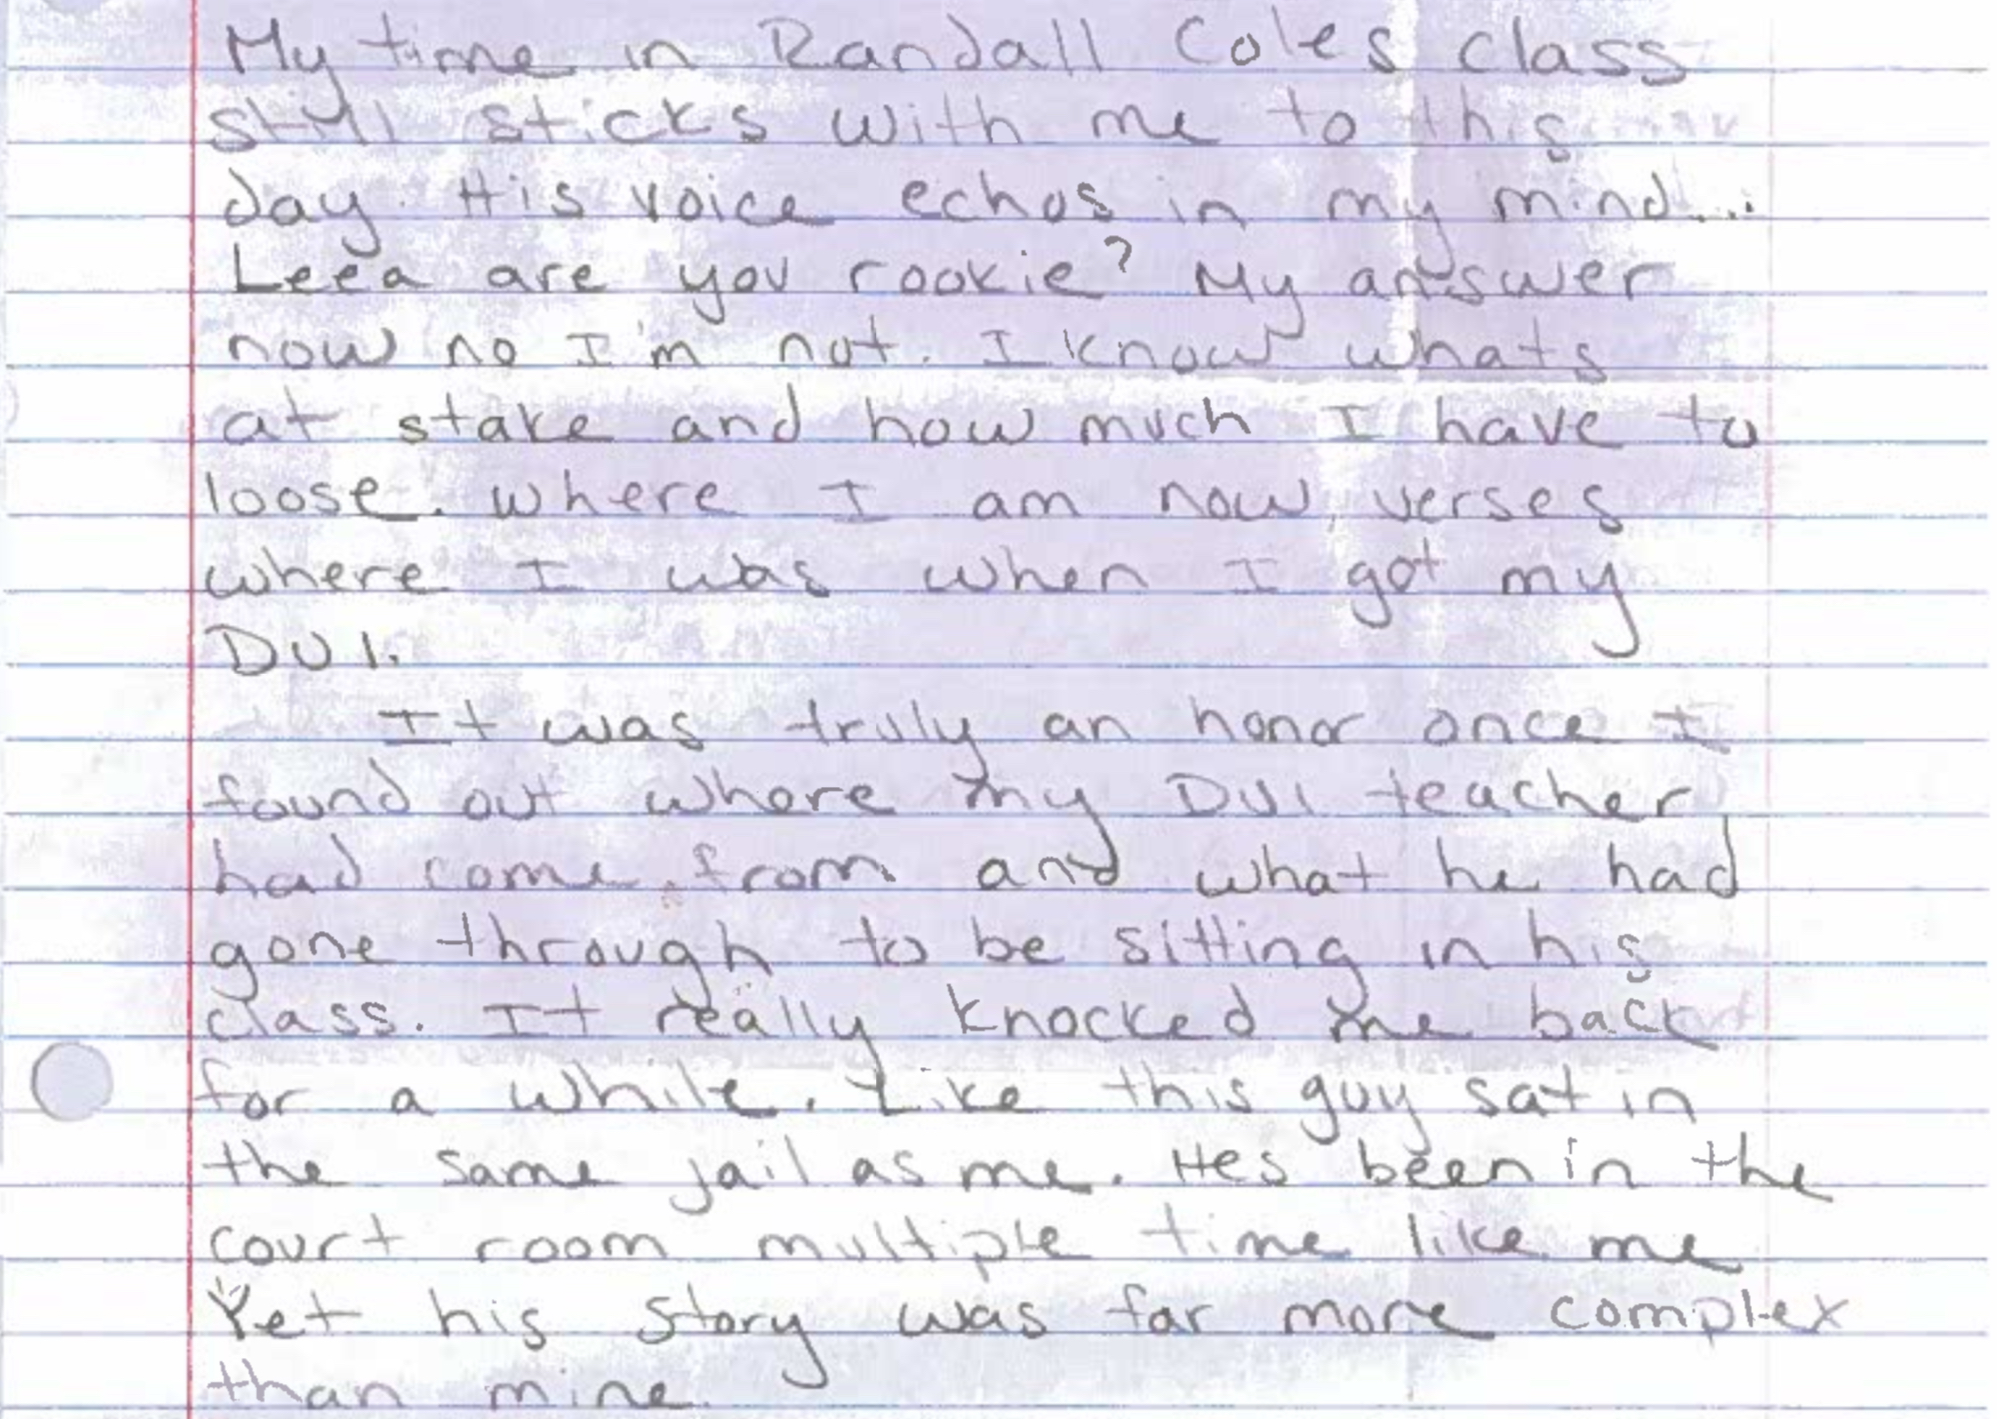 My time in Randall Coles class
still sticks with me to this
day. His voice echos in my mind...
Leea are you rookie? My answer
now no I'm not. I know whats
at stake and how much I have to
loose. Where I am now verses
where I was when I got my
DUI.
It was truly an honor once I
found out where my DUI teacher
had come from and what he had
gone through to be sitting in his
class. It really knocked me back
for a while. Like this guy sat in
the same jail as me. Hes been in the
court room multiple time like me
Yet his story was far more complex
than mine.